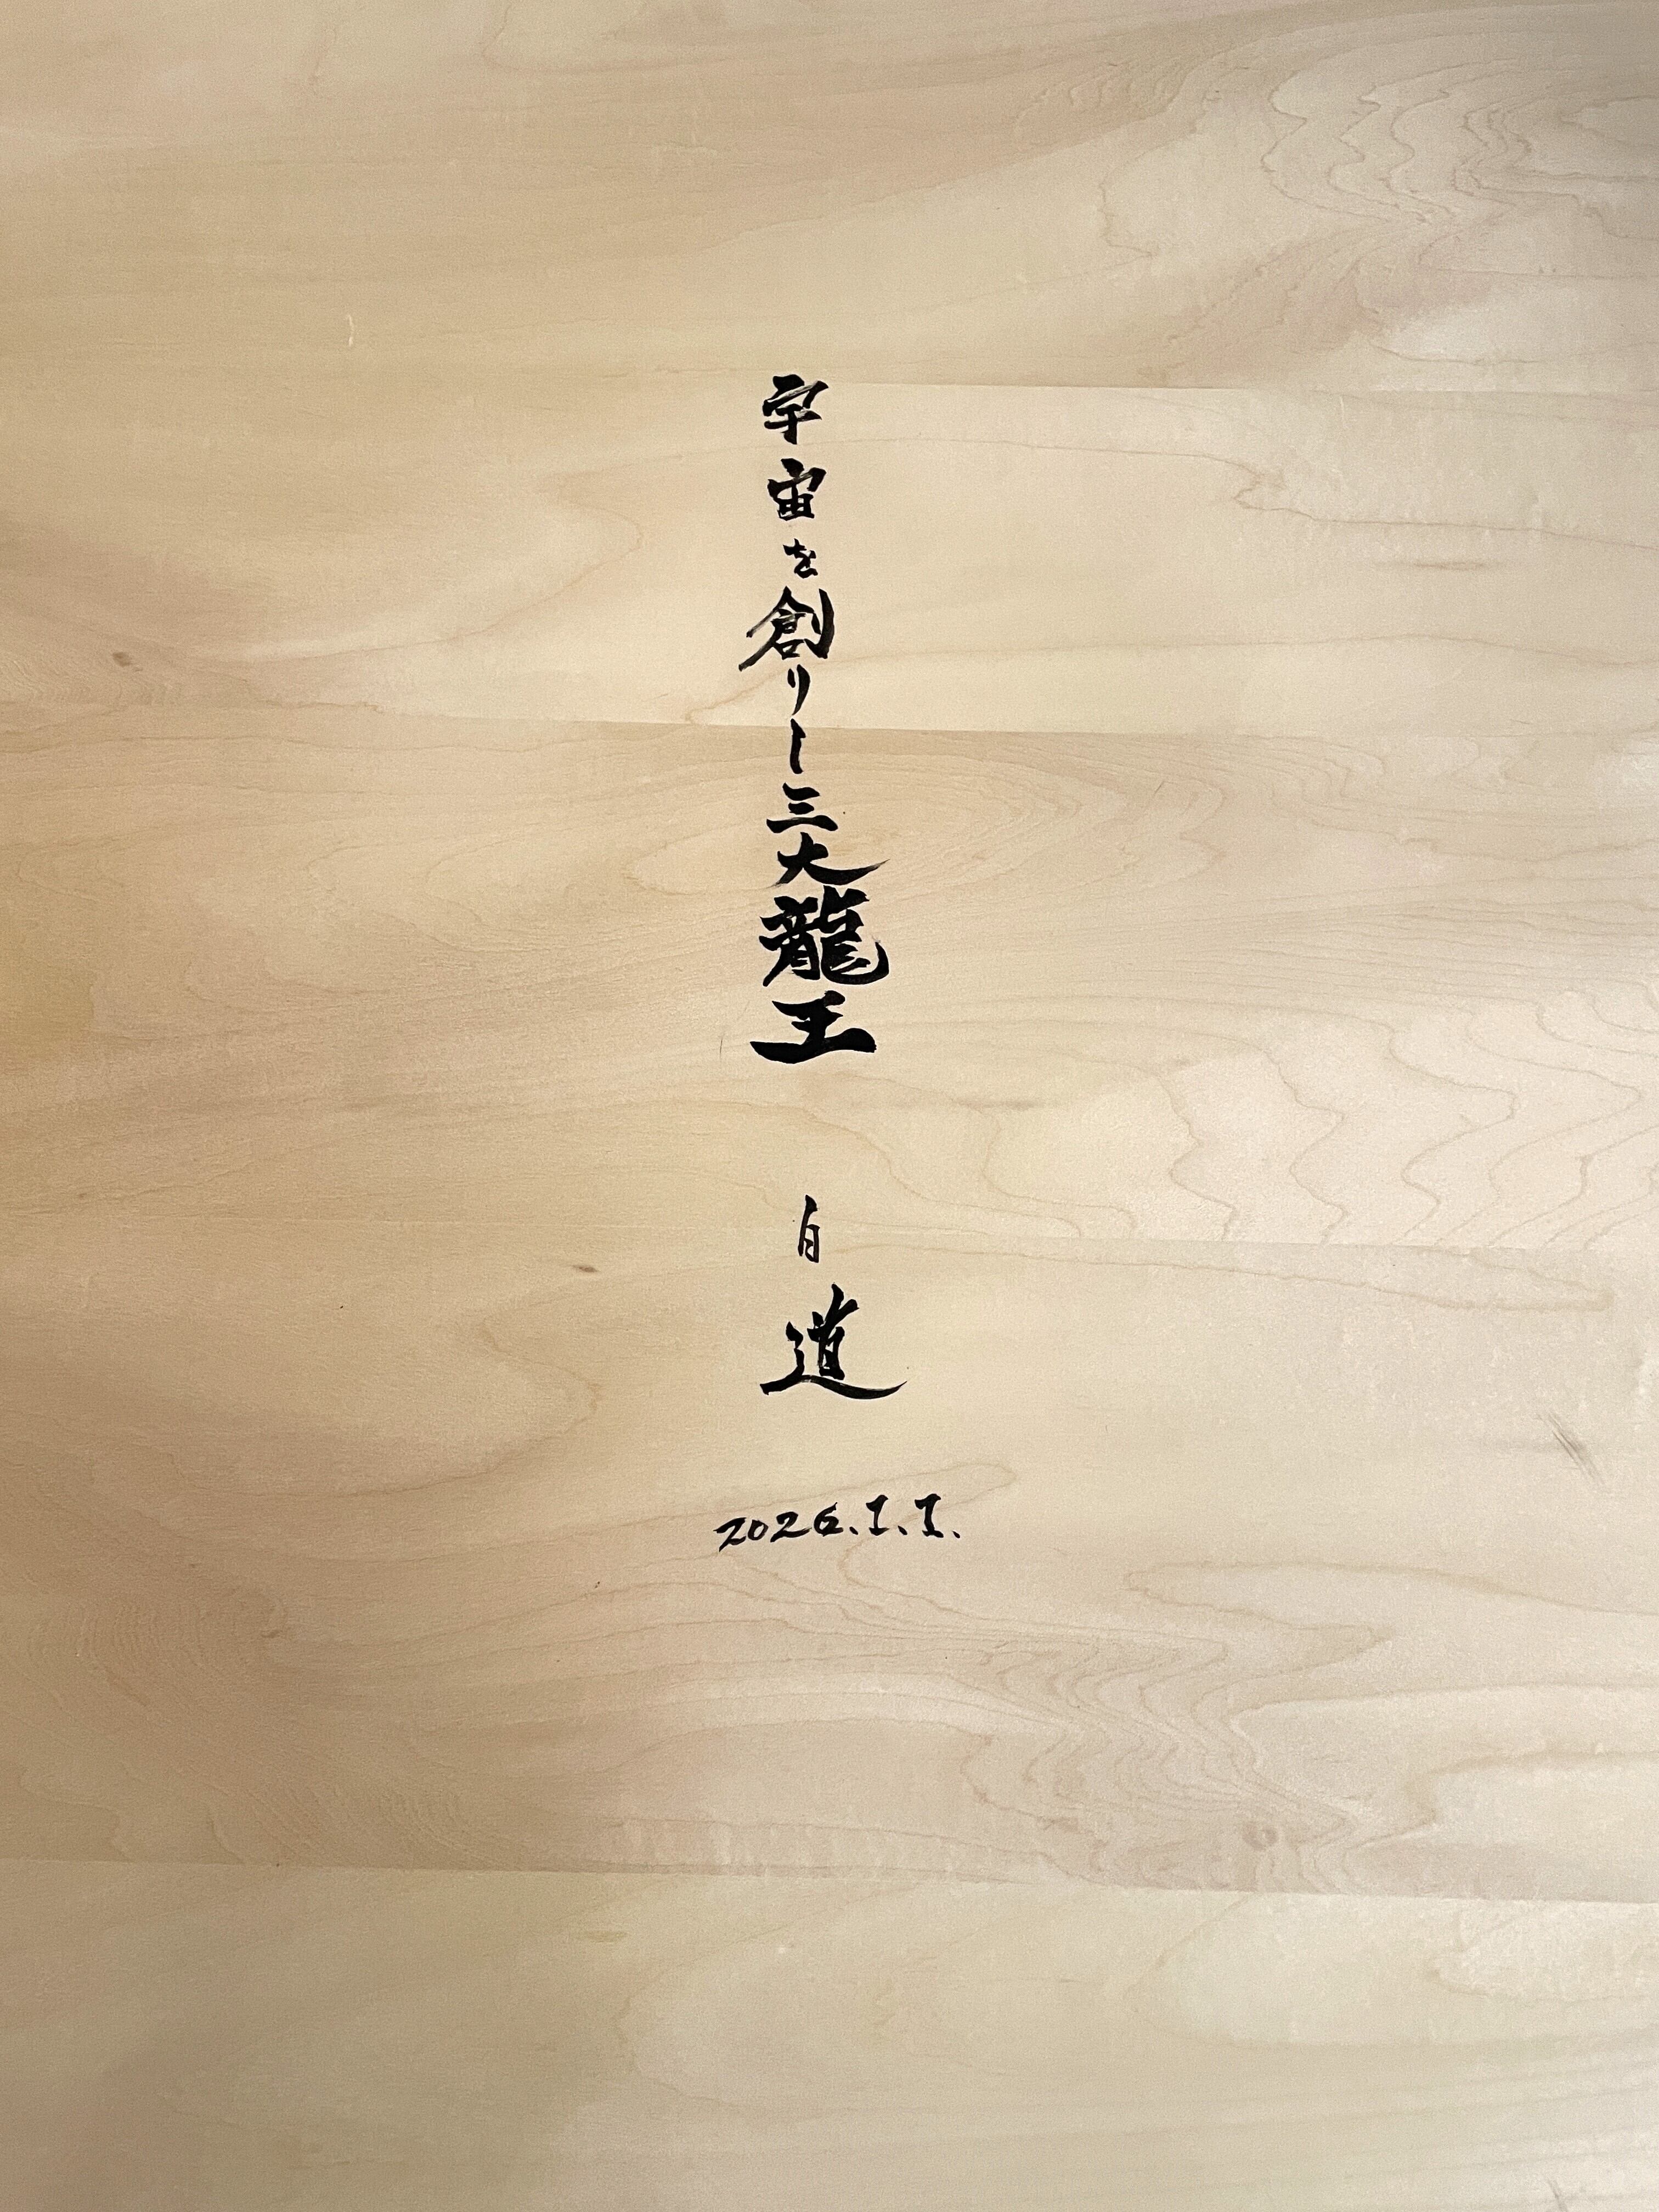 宇宙を創りし三大龍王
自道
2026.1.1.